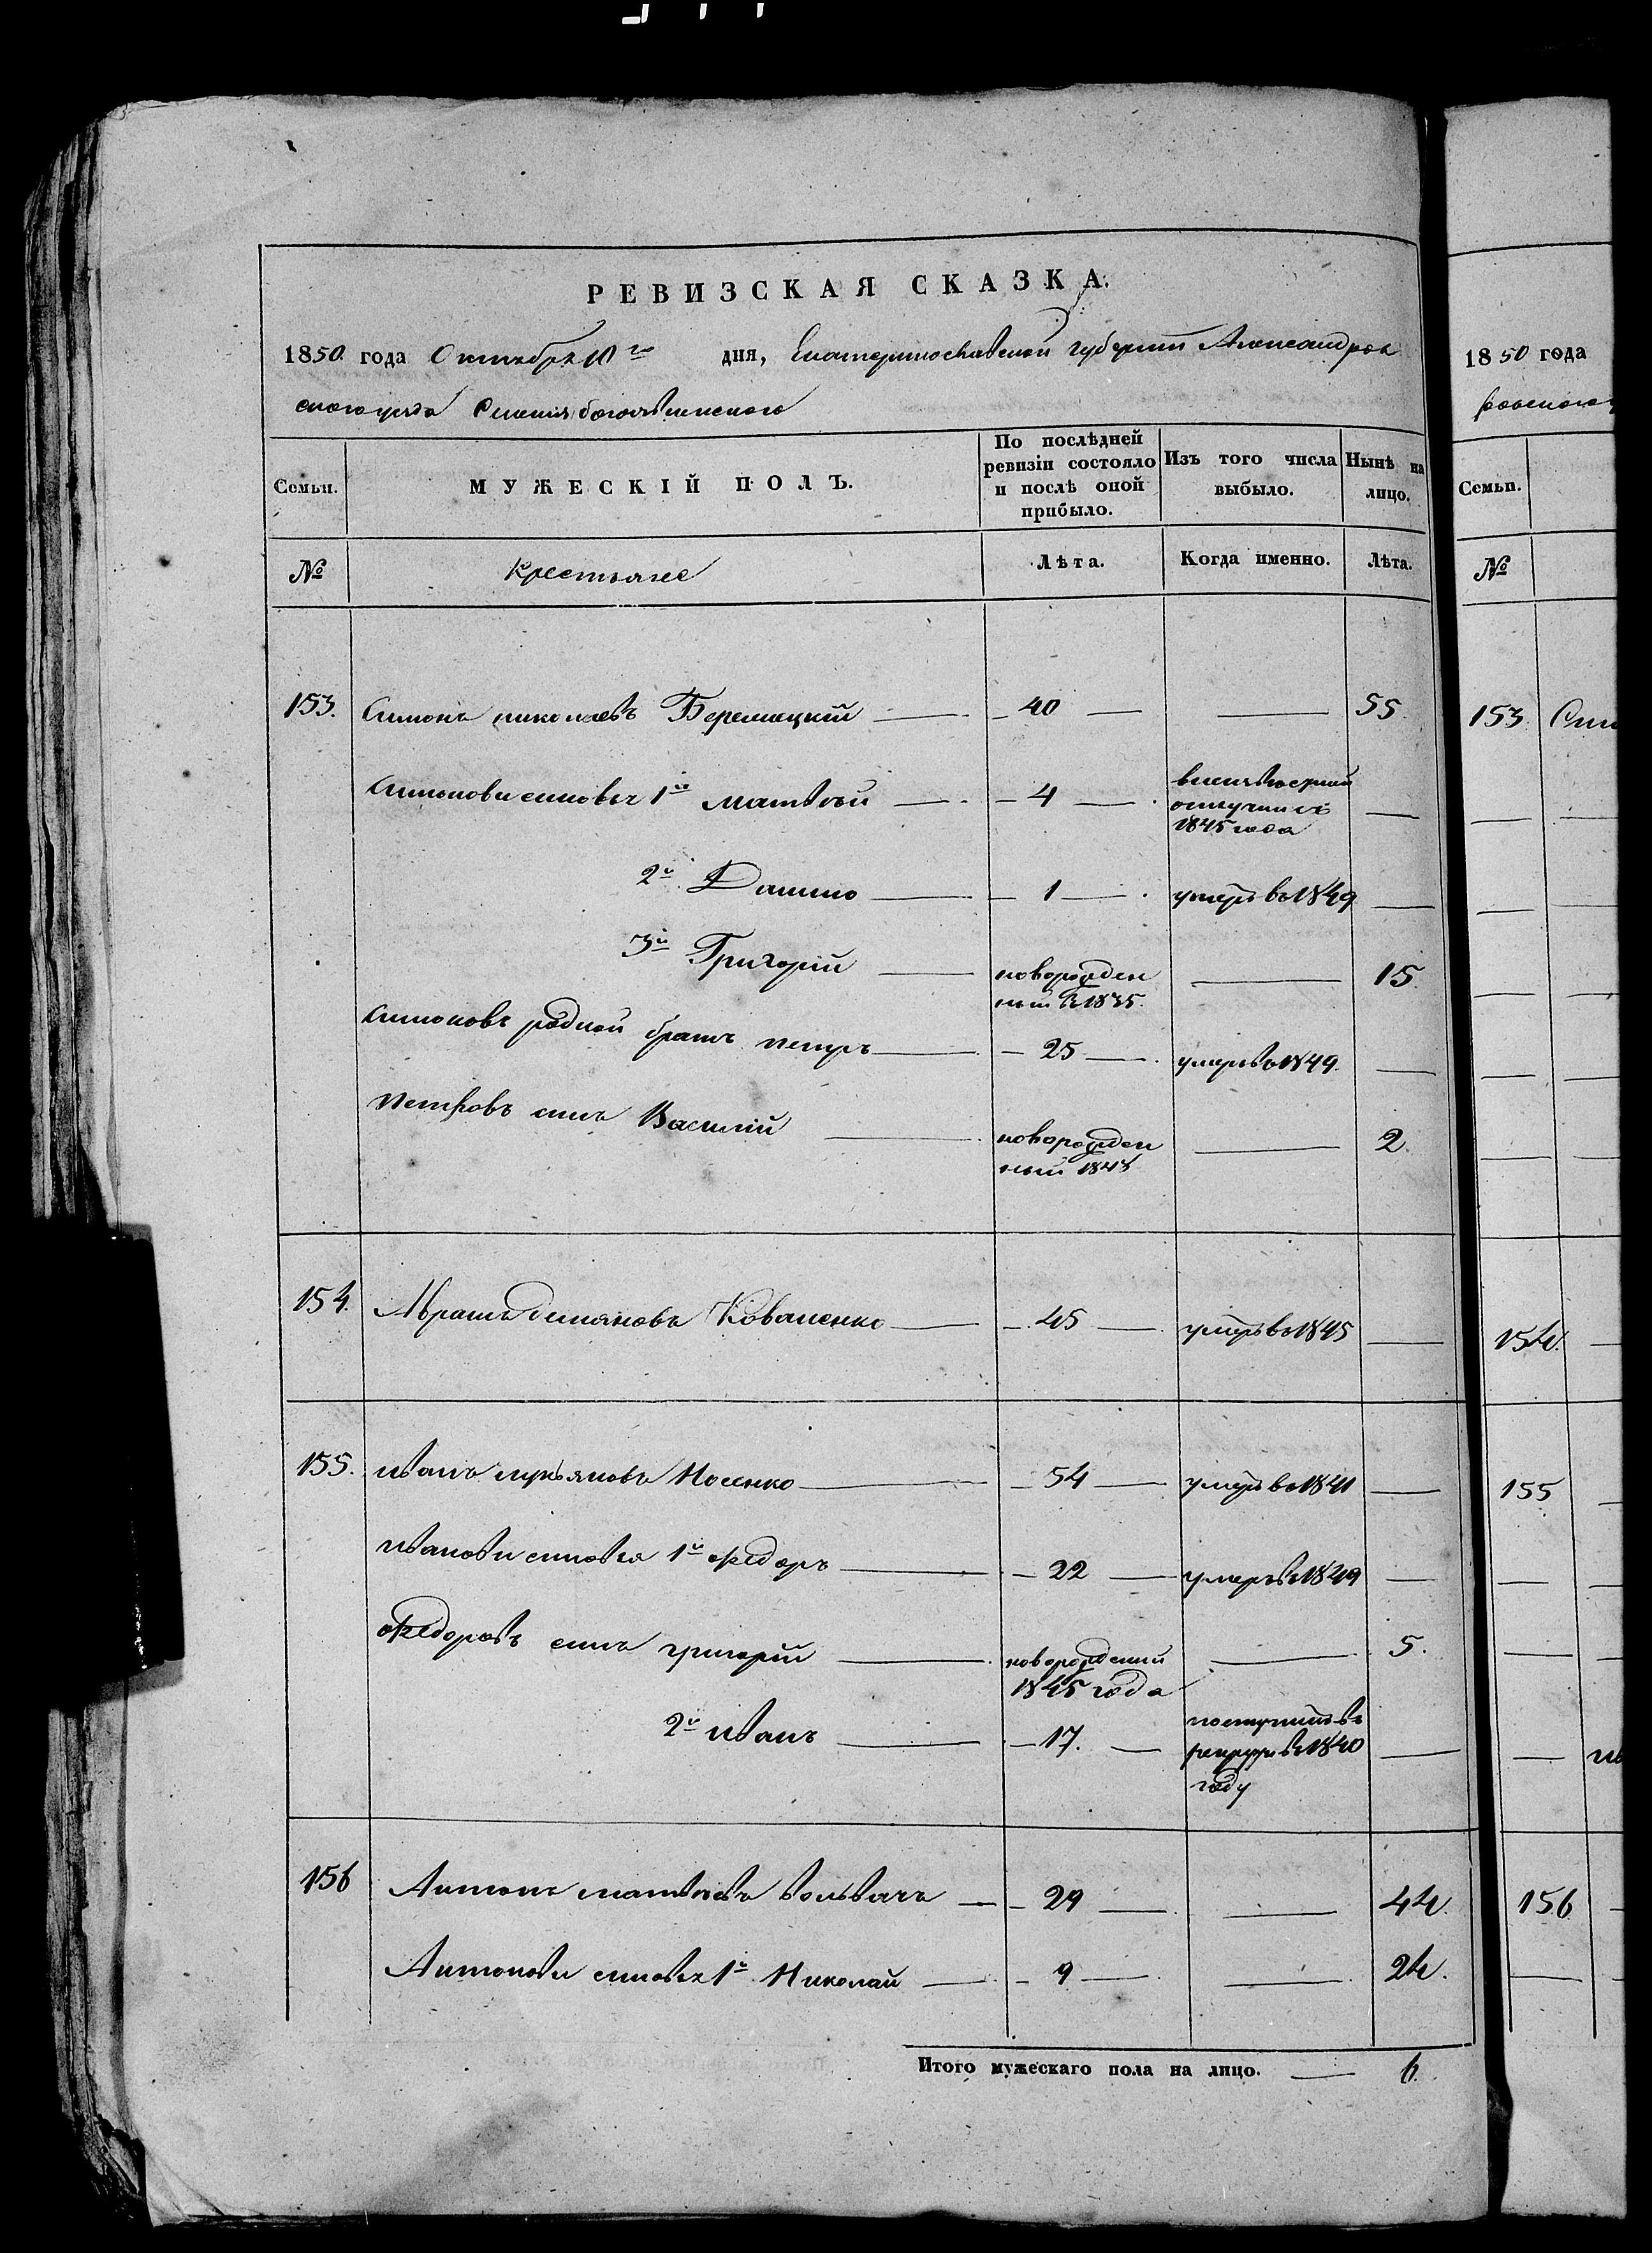 РЕВИЗСКАЯ СКАЗКА.
1850 года Октября 10го дня, Екатеринославской губернии Александров
скаго уезда Имения Богоявленского
Семьи.
МУЖЕСКІЙ ПОЛЪ.
По послѣдней ревизіи состояло и послѣ оной прибыло.
Изъ того числа выбыло.
Нынѣ на лицо.
№
Крестьяне
Лѣта.
Когда именно.
Лѣта.
153. Симонъ николаевъ Беремецкій — 40 — — 55.
Симонови сыновья 1й матвѣй — 4 —
1845 года
2й Данило — 1 — умеръ въ 1849 —
3й Григорій — новорожден — 15.
ный въ 1835.
Симоновъ родной братъ петръ — 25 — умеръ въ 1849. —
петровъ сынъ Василій — новорожден — 2.
ный 1848
154. Абрамъ демяновъ Коваленко — 45 — умеръ въ 1845 —
155. иванъ лукъяновъ Носенко — 54 — умеръ въ 1841 —
иванови сыновья 1й федоръ — 22 — умеръ въ 1849 —
федоровъ сынъ григорій — новорождений — 5.
1845 года
2й иванъ — 17. — поступилъ въ
рекруты въ 1840 —
году
156 Антонъ матвѣевъ вольвачъ — 29 — — 44.
Антонови сыновья 1й Николай — 9 — — 24.
Итого мужескаго пола на лицо. — 6.
1850 года
Семьи.
№
153.
154.
155
156